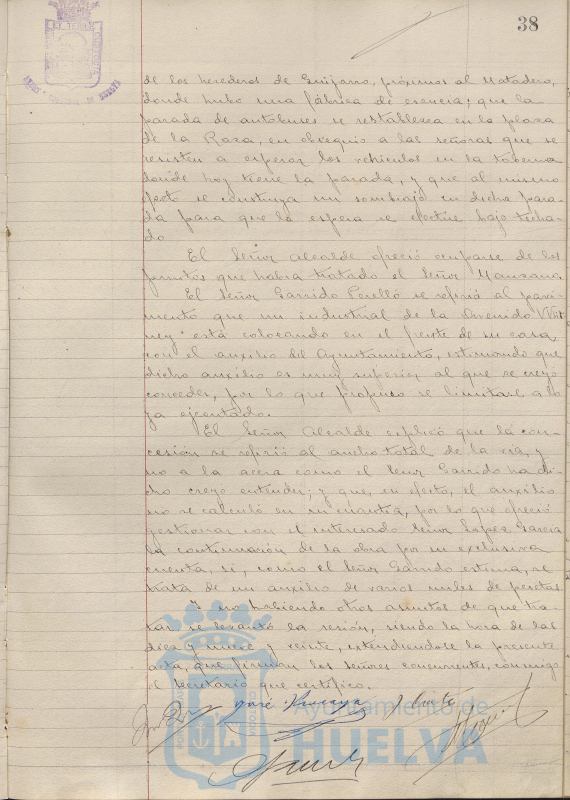 38
de los herederos de Guijarro, próximos al Matadero,
donde hubo una fábrica de esencia; que la
parada de autobuses se restablezca en la plaza
de la Rosa, en obsequio a las señoras que se
resisten a esperar los vehículos en la taberna
donde hoy tiene la parada, y que al mismo
efecto se construya un sombrajo en dicha para-
da para que la espera se efectúe bajo techa-
do.
El Señor Alcalde ofreció ocuparse de los
puntos que había tratado el Señor Manzano.
El Señor Garrido Perelló se refirió al pavi-
mento que un industrial de la Avenida Whit
ney está colocando en el frente de su casa
con el auxilio del Ayuntamiento, estimando que
dicho auxilio es muy superior al que se creyó
conceder, por lo que propuso se limitase a lo
ya ejecutado.
El Señor Alcalde explicó que la con-
cesión se refirió al ancho total de la vía, y
no a la acera como el Señor Garrido ha di-
cho creyo entender; y que, en efecto, el auxilio
no se calculó en su cuantía, por lo que ofreció
gestionar con el interesado Señor López García
la continuación de la obra por su exclusiva
cuenta, si, como el Señor Garrido estima, se
trata de un auxilio de varios miles de pesetas.
Y no habiendo otros asuntos de que tra-
tar se levantó la sesión, siendo la hora de las
diez y nueve y veinte, extendiéndose la presente
acta, que firman los Señores concurrentes, conmigo
el Secretario que certifico.
José
Ayuntamiento de
HUELVA